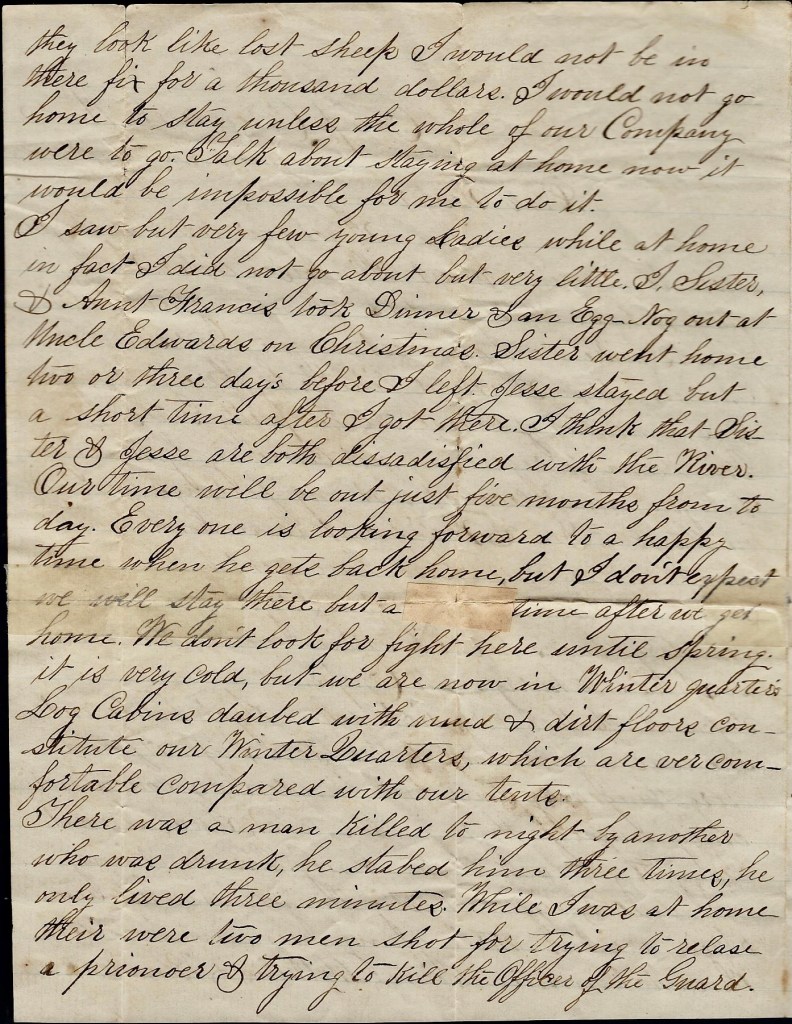 they look like lost sheep I would not be in
there fix for a thousand dollars. I would not go
home to stay unless the whole of our Company
were to go. Talk about staying at home now it
would be impossible for me to do it.
I saw but very few young Ladies while at home
in fact I did not go about but very little. I, Sister,
& Aunt Francis took Dinner & an Egg-Nog out at
Uncle Edwards on Christmas. Sister went home
two or three day's before I left. Jesse stayed but
a short time after I got there. I think that Sis-
ter & Jesse are both dissadisfied with the River.
Our time will be out just five months from to
day. Every one is looking forward to a happy
time when he gets back home, but I don't expect
we will stay there but a time after we get
home. We don't look for fight here until spring.
it is very cold, but we are now in Winter quarters
Log Cabins daubed with mud & dirt floors con-
stitute our Winter Quarters, which are ver com-
fortable compared with our tents.
There was a man killed to night by another
who was drunk, he stabed him three times, he
only lived three minutes. While I was at home
their were two men shot for trying to relase
a prionoer & trying to kill the Officer of the Guard.